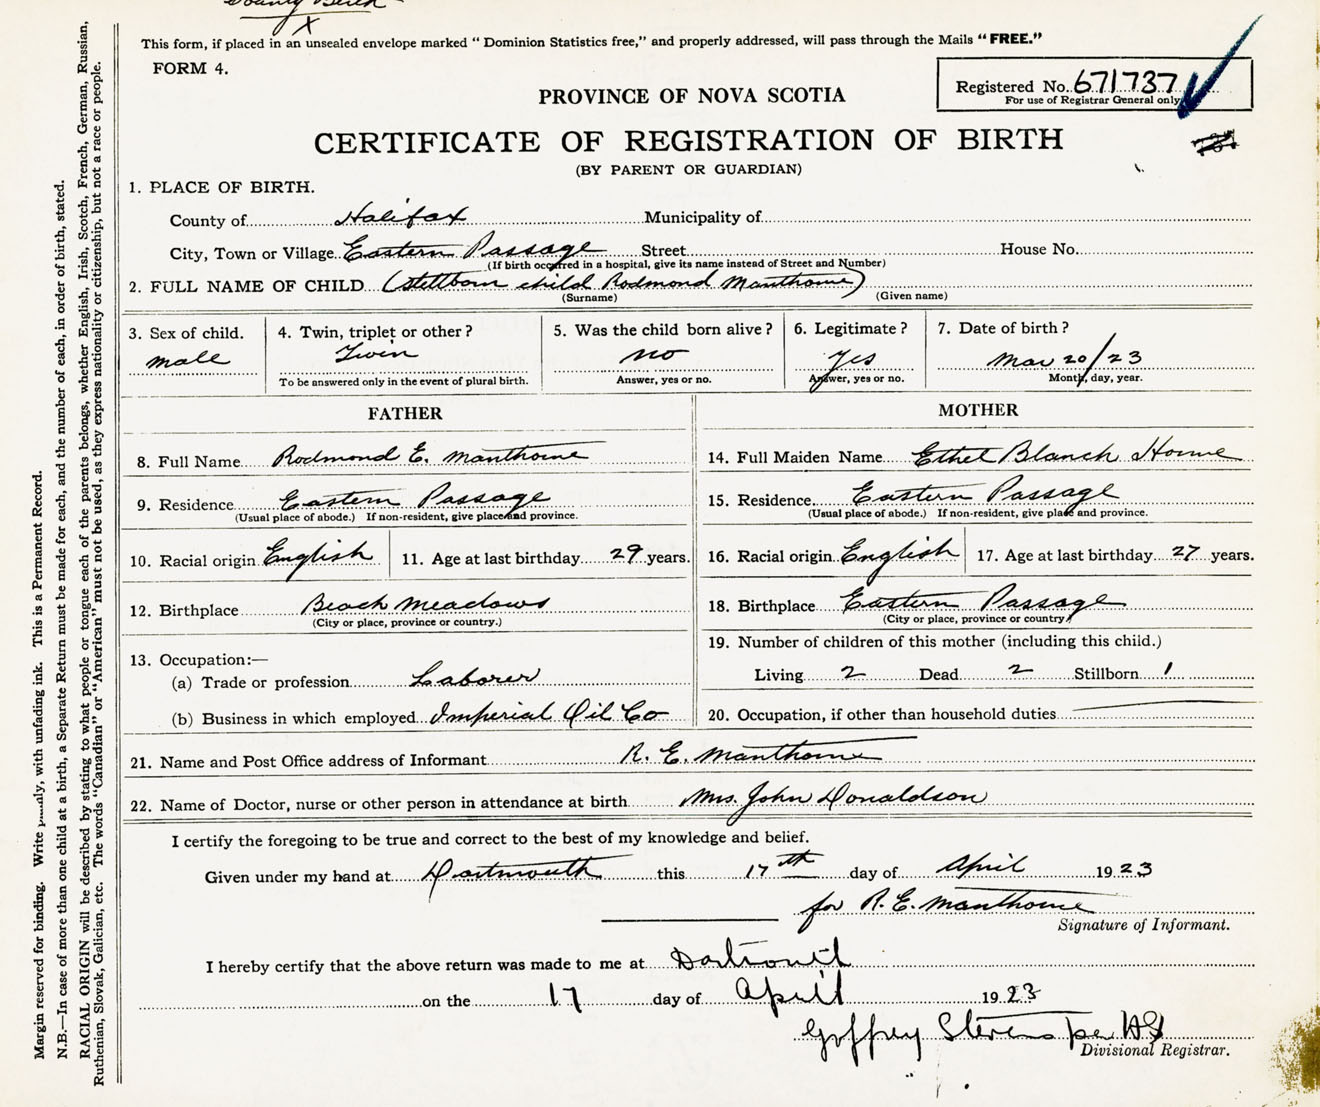 County Birth
X
This form, if placed in an unsealed envelope marked "Dominion Statistics free," and properly addressed, will pass through the Mails "FREE."
FORM 4.
Registered No. 671737
For use of Registrar General only
PROVINCE OF NOVA SCOTIA
CERTIFICATE OF REGISTRATION OF BIRTH
(BY PARENT OR GUARDIAN)
1. PLACE OF BIRTH.
County of Halifax Municipality of
City, Town or Village Eastern Passage Street House No.
(If birth occurred in a hospital, give its name instead of Street and Number)
2. FULL NAME OF CHILD (Stillborn child Rodmond Manthorne)
(Surname) (Given name)
3. Sex of child. 4. Twin, triplet or other? 5. Was the child born alive? 6. Legitimate? 7. Date of birth?
male Twin no yes Mar 20/23
To be answered only in the event of plural birth. Answer, yes or no. Answer, yes or no. Month, day, year.
FATHER MOTHER
8. Full Name Rodmond E. Manthorne 14. Full Maiden Name Ethel Blanch Horne
9. Residence Eastern Passage 15. Residence Eastern Passage
(Usual place of abode.) If non-resident, give place and province. (Usual place of abode.) If non-resident, give place and province.
10. Racial origin English 11. Age at last birthday 29 years. 16. Racial origin English 17. Age at last birthday 27 years.
12. Birthplace Beach Meadows 18. Birthplace Eastern Passage
(City or place, province or country.) (City or place, province or country)
13. Occupation:— 19. Number of children of this mother (including this child.)
(a) Trade or profession Laborer Living 2 Dead 2 Stillborn 1
(b) Business in which employed Imperial Oil Co 20. Occupation, if other than household duties
21. Name and Post Office address of Informant R. E. Manthorne
22. Name of Doctor, nurse or other person in attendance at birth Mrs. John Donaldson
I certify the foregoing to be true and correct to the best of my knowledge and belief.
Given under my hand at Dartmouth this 17th day of April 1923
for R. E. Manthorne
Signature of Informant.
I hereby certify that the above return was made to me at Dartmouth
on the 17 day of April 1923
Goffrey Stevens per HS
Divisional Registrar.
Margin reserved for binding. Write plainly, with unfading ink. This is a Permanent Record.
N.B.—In case of more than one child at a birth, a Separate Return must be made for each, and the number of each, in order of birth, stated.
RACIAL ORIGIN will be described by stating to what people or tongue each of the parents belongs, whether English, Irish, Scotch, French, German, Russian,
Ruthenian, Slovak, Galician, etc. The words "Canadian" or "American" must not be used, as they express nationality or citizenship, but not a race or people.